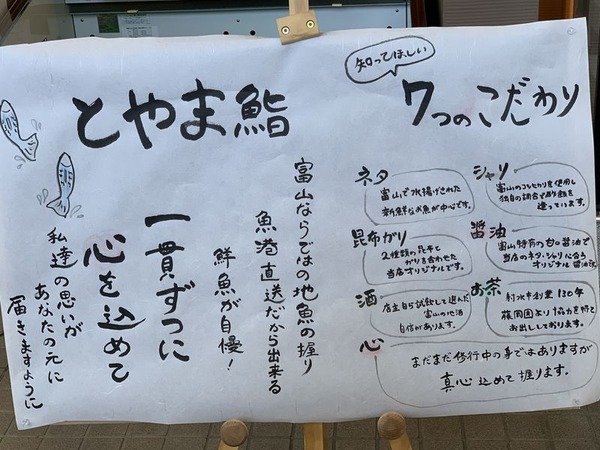 とやま鮨
富山ならではの地魚の握り
魚港直送だから出来る
鮮魚が自慢!
一貫ずつに
心を込めて
私達の思いが
あなたの元に
届きますように
知ってほしい
7つのこだわり
ネタ
富山で水揚げされた
新鮮なお魚が中心です。
シャリ
富山のコシヒカリを使用し
独自の調合で酢飯を
造っています。
昆布がり
2種類の昆布と
がりを合わせた
当店オリジナルです。
醤油
富山特有の甘口醤油で
当店のネタ・シャリに合う
オリジナル醤油。
酒
店主自ら試飲して選んだ
富山の地酒
自信があります。
お茶
射水市創業130年
お出ししております。
心
まだまだ修行中の事ではありますが
真心込めて握ります。